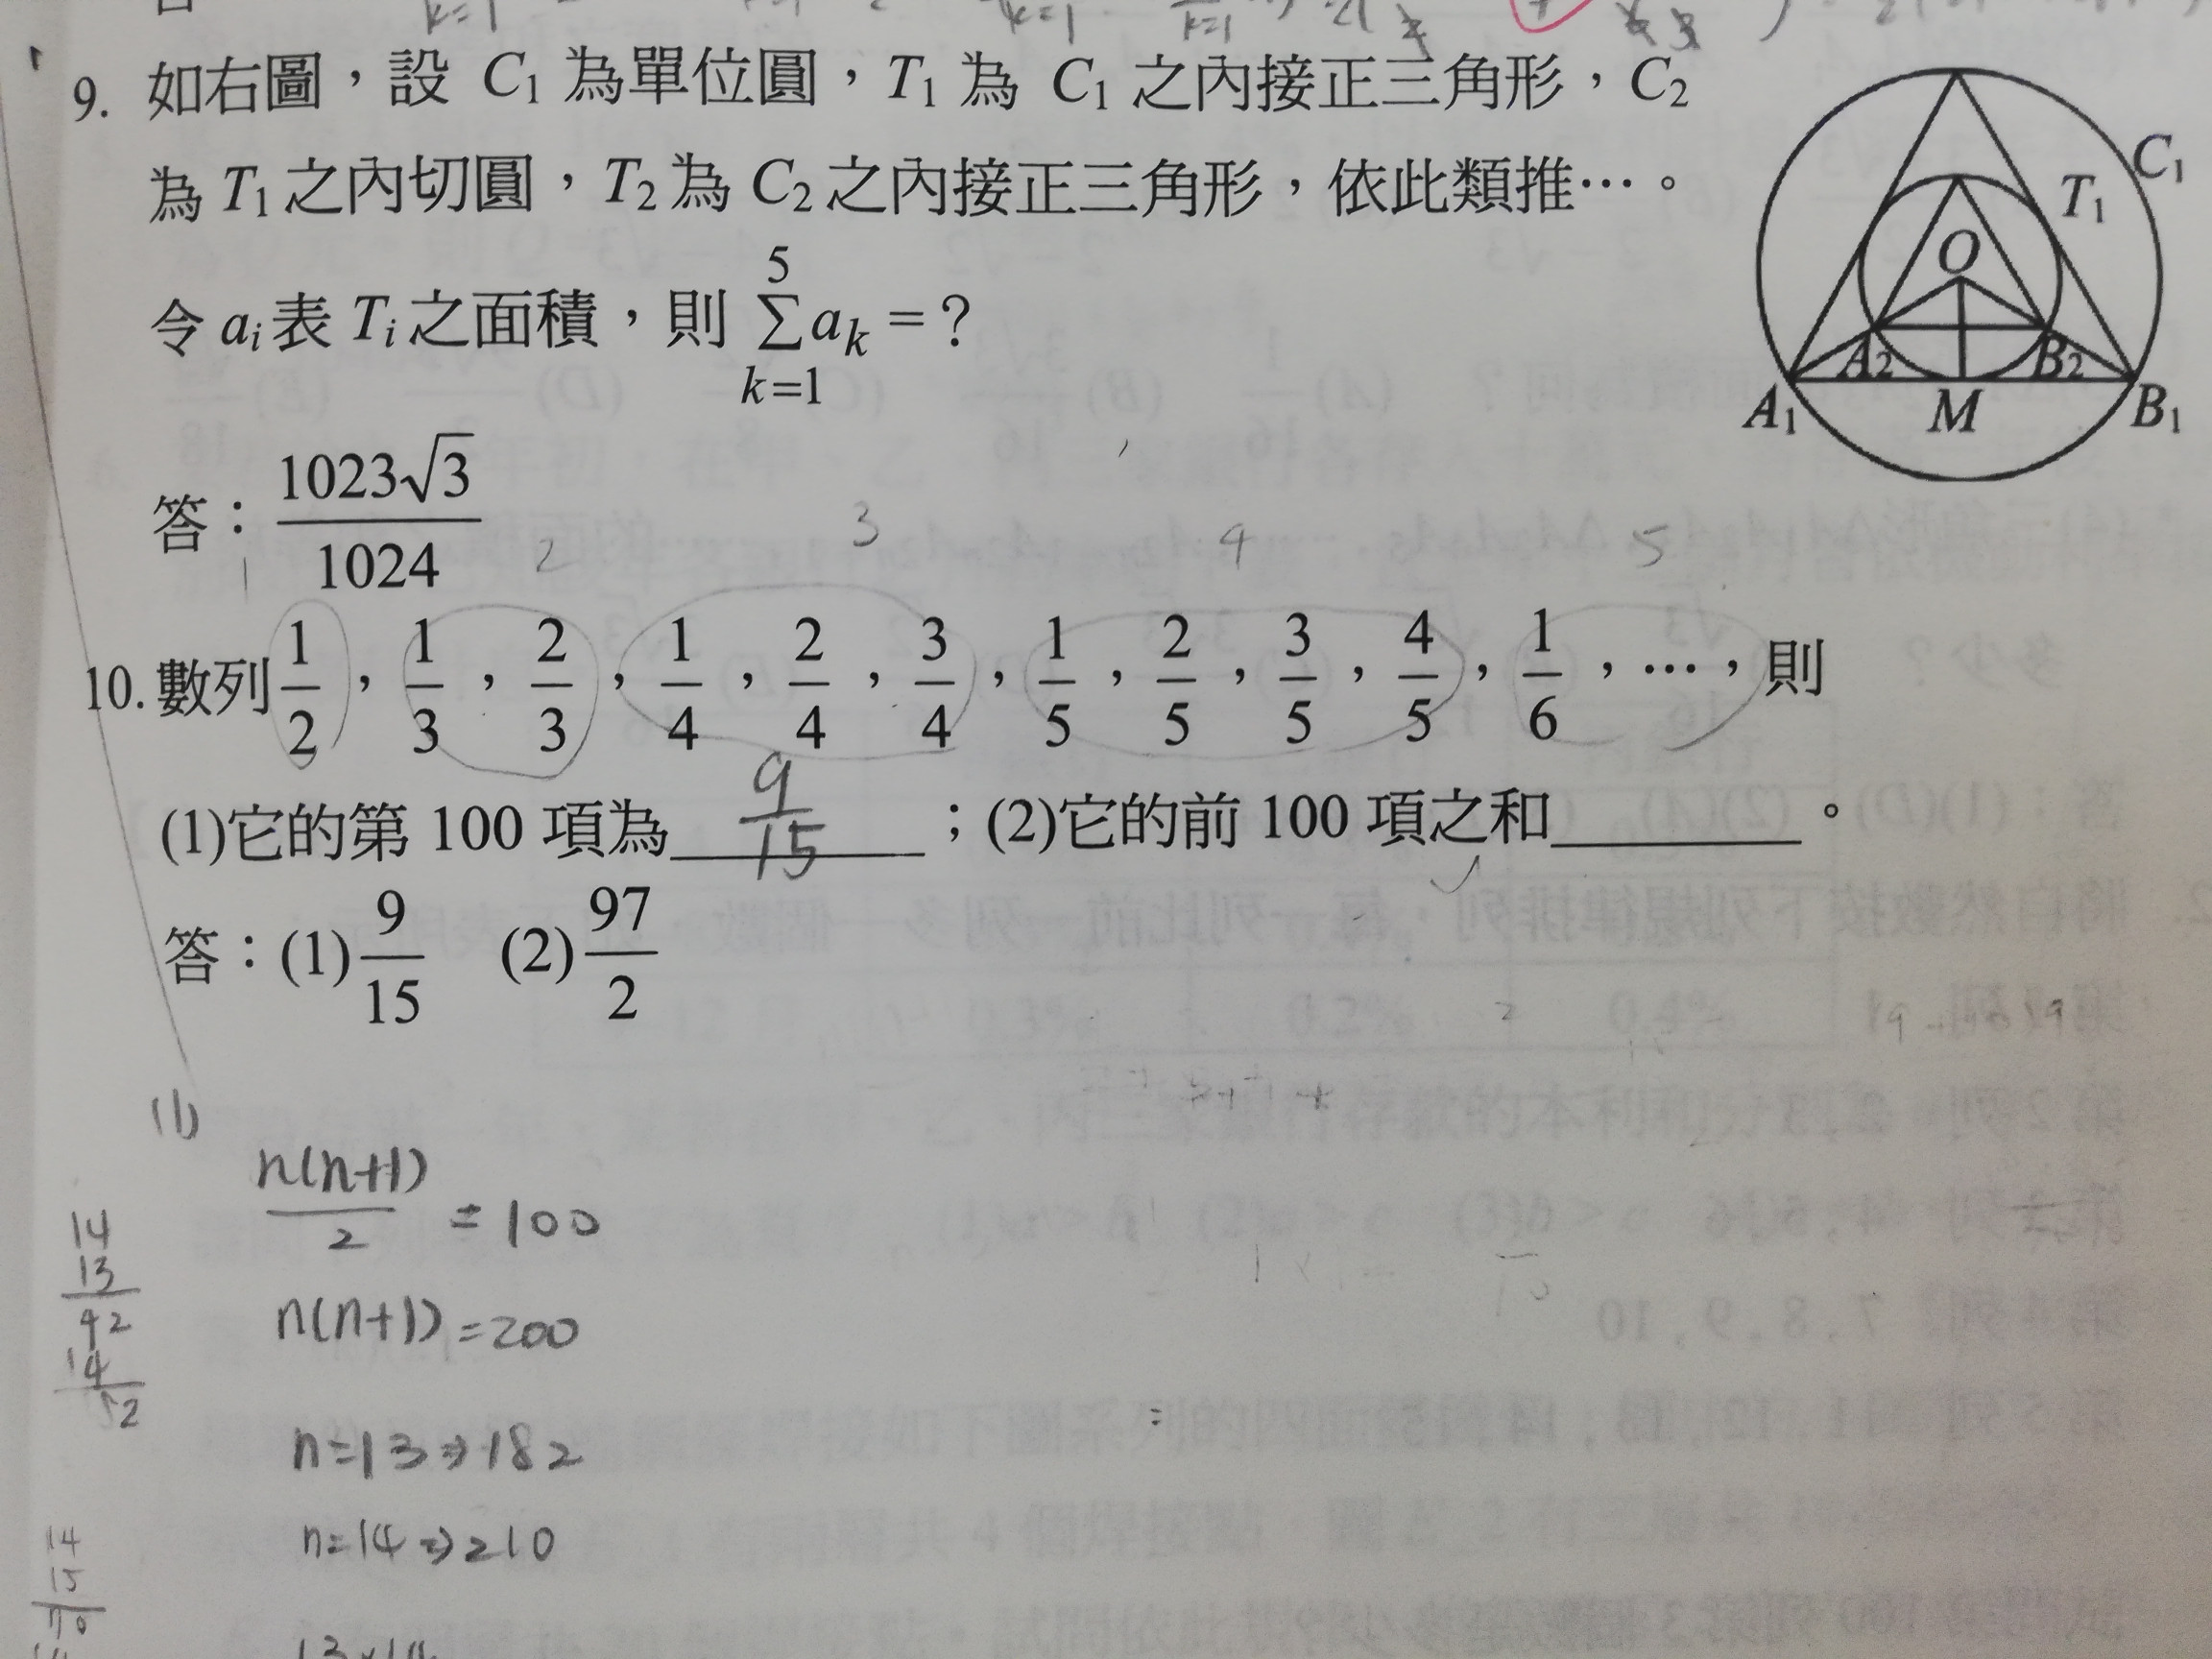 9. 如右圖，設 C₁ 為單位圓，T₁ 為 C₁ 之內接正三角形，C₂
為 T₁ 之內切圓，T₂ 為 C₂ 之內接正三角形，依此類推…。
令 aᵢ 表 Tᵢ 之面積，則 ∑_{k=1}^{5} aₖ = ?
C₁
T₁
O
A₂ B₂
A₁ M B₁
答：1023√3/1024
1 2 3 4 5
10. 數列 1/2，1/3，2/3，1/4，2/4，3/4，1/5，2/5，3/5，4/5，1/6，…，則
(1)它的第 100 項為 9/15；(2)它的前 100 項之和______。
答：(1) 9/15 (2) 97/2
(1)
n(n+1)/2 = 100
n(n+1) = 200
n=13⇒182
n=14⇒210
13×14
14
13
42
14
52
14
15
70